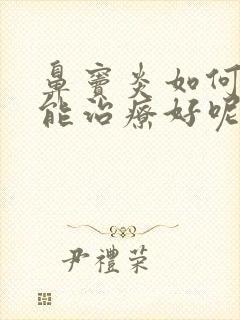 鼻窦炎如何
能治療好呢
尹禮荣